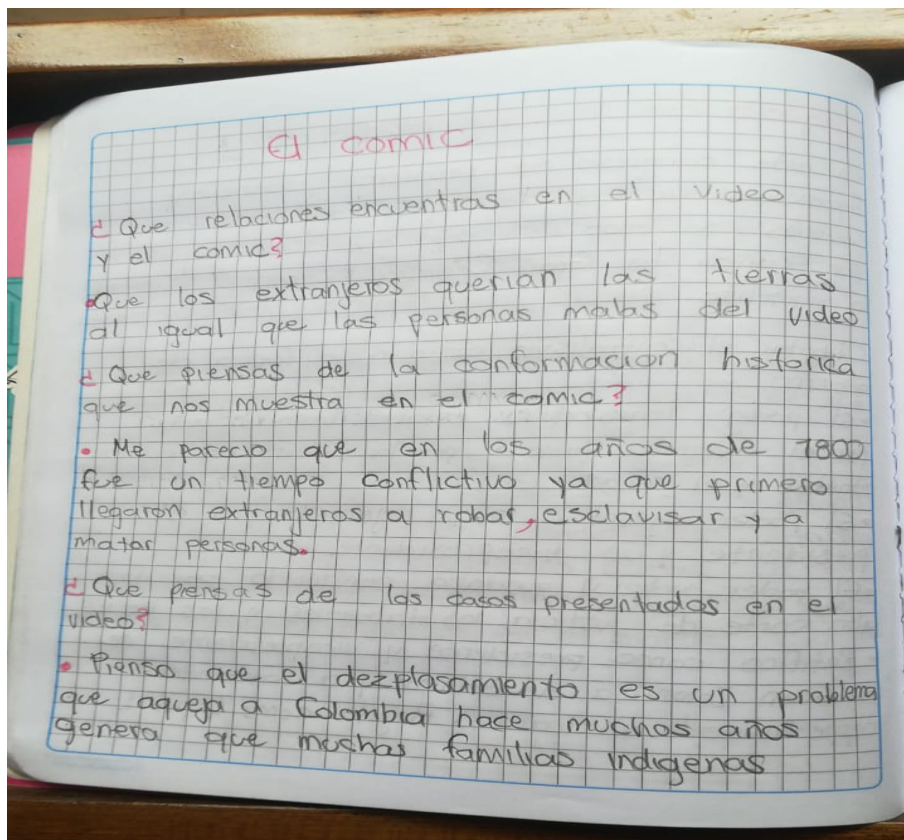 El comic
¿Que relaciones encuentras en el video
y el comic?
•Que los extranjeros querian las tierras
al igual que las personas malas del video
¿Que piensas de la conformacion historica
que nos muestra en el comic?
• Me parecio que en los años de 1800
fue un tiempo conflictivo ya que primero
llegaron extranjeros a robar, esclavisar y a
matar personas.
¿Que piensas de los casos presentados en el
video?
• Pienso que el dezplasamiento es un problema
que aqueja a Colombia hace muchos años
genera que muchas familias indigenas